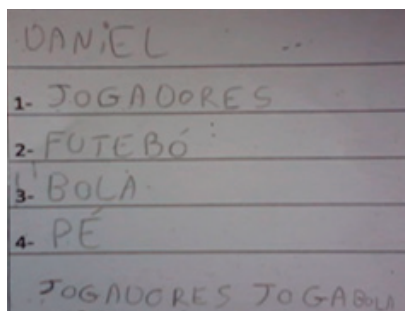 DANiEL
1- JOGADORES
2- FUTEBÓ
3- BOLA
4- PÉ
JOGADORES JOGA BOLA